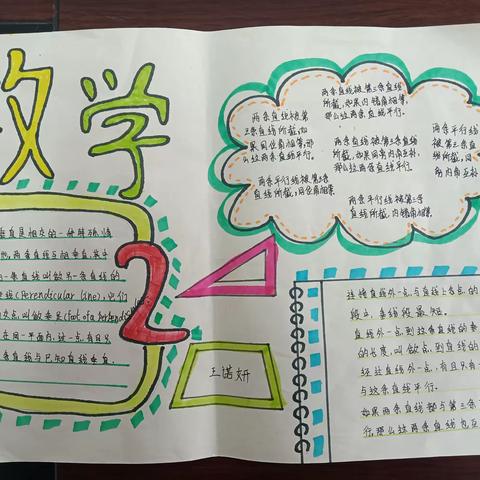 数学
垂直是相交的一种特殊情
两条直线互相垂直,其中
一条直线叫做另一条直线的
垂线(Perendicular line),它们
点叫做垂足(foot of a
在同一平面内,过一点有且只
条直线与已知直线垂直
2
两条直线被第
三条直线所截,如
果同位角相等,那
么这两条直线平行。
两条直线被第三条直线
所截,如果内错角相等,
那么这两条直线平行。
两条直线被第三条直线
所截,如果同旁内角互补,
那么这两条直线平行。
两条平行线
被第三条直
线所截,同
旁内角互补
两条平行线被第三条
直线所截,同位角相等
两条平行线被第三条
直线所截,内错角相等
王诺妍
连接直线外一点与直线上各点的
段中,垂线段最短。
直线外一点到这条直线的垂
的长度,叫做点到直线的
经过直线外一点,有且只有一
与这条直线平行。
如果两条直线都与第三条直
行,那么这两条直线也互